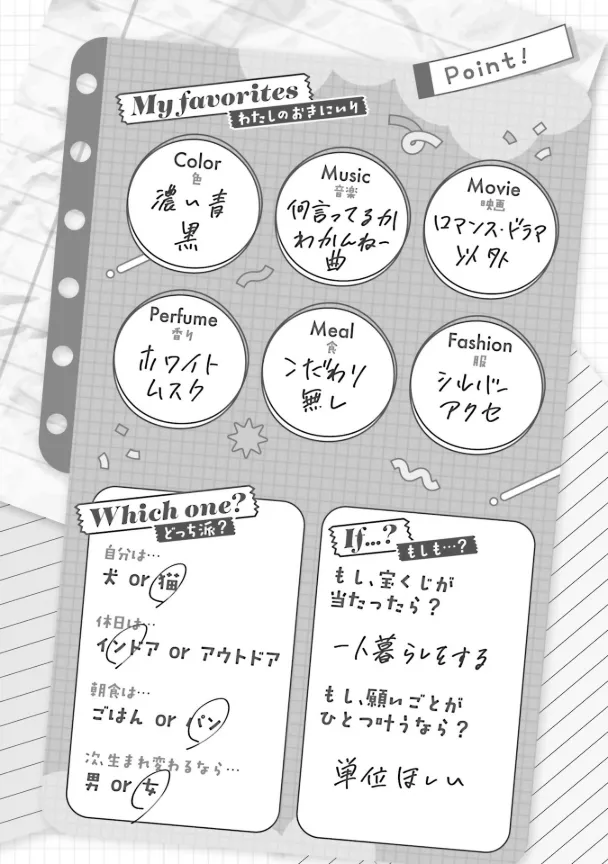 Point!
My favorites
わたしのおきにいり
Color
色
濃い青
黒
Music
音楽
何言ってるか
わかんねー
曲
Movie
映画
ロマンス・ドラマ
以外
Perfume
香り
ホワイト
ムスク
Meal
食
こだわり
無し
Fashion
服
シルバー
アクセ
Which one?
どっち派?
自分は…
犬 or 猫
休日は…
インドア or アウトドア
朝食は…
ごはん or パン
次、生まれ変わるなら…
男 or 女
If...?
もしも…?
もし、宝くじが
当たったら?
一人暮らしをする
もし、願いごとが
ひとつ叶うなら?
単位ほしい